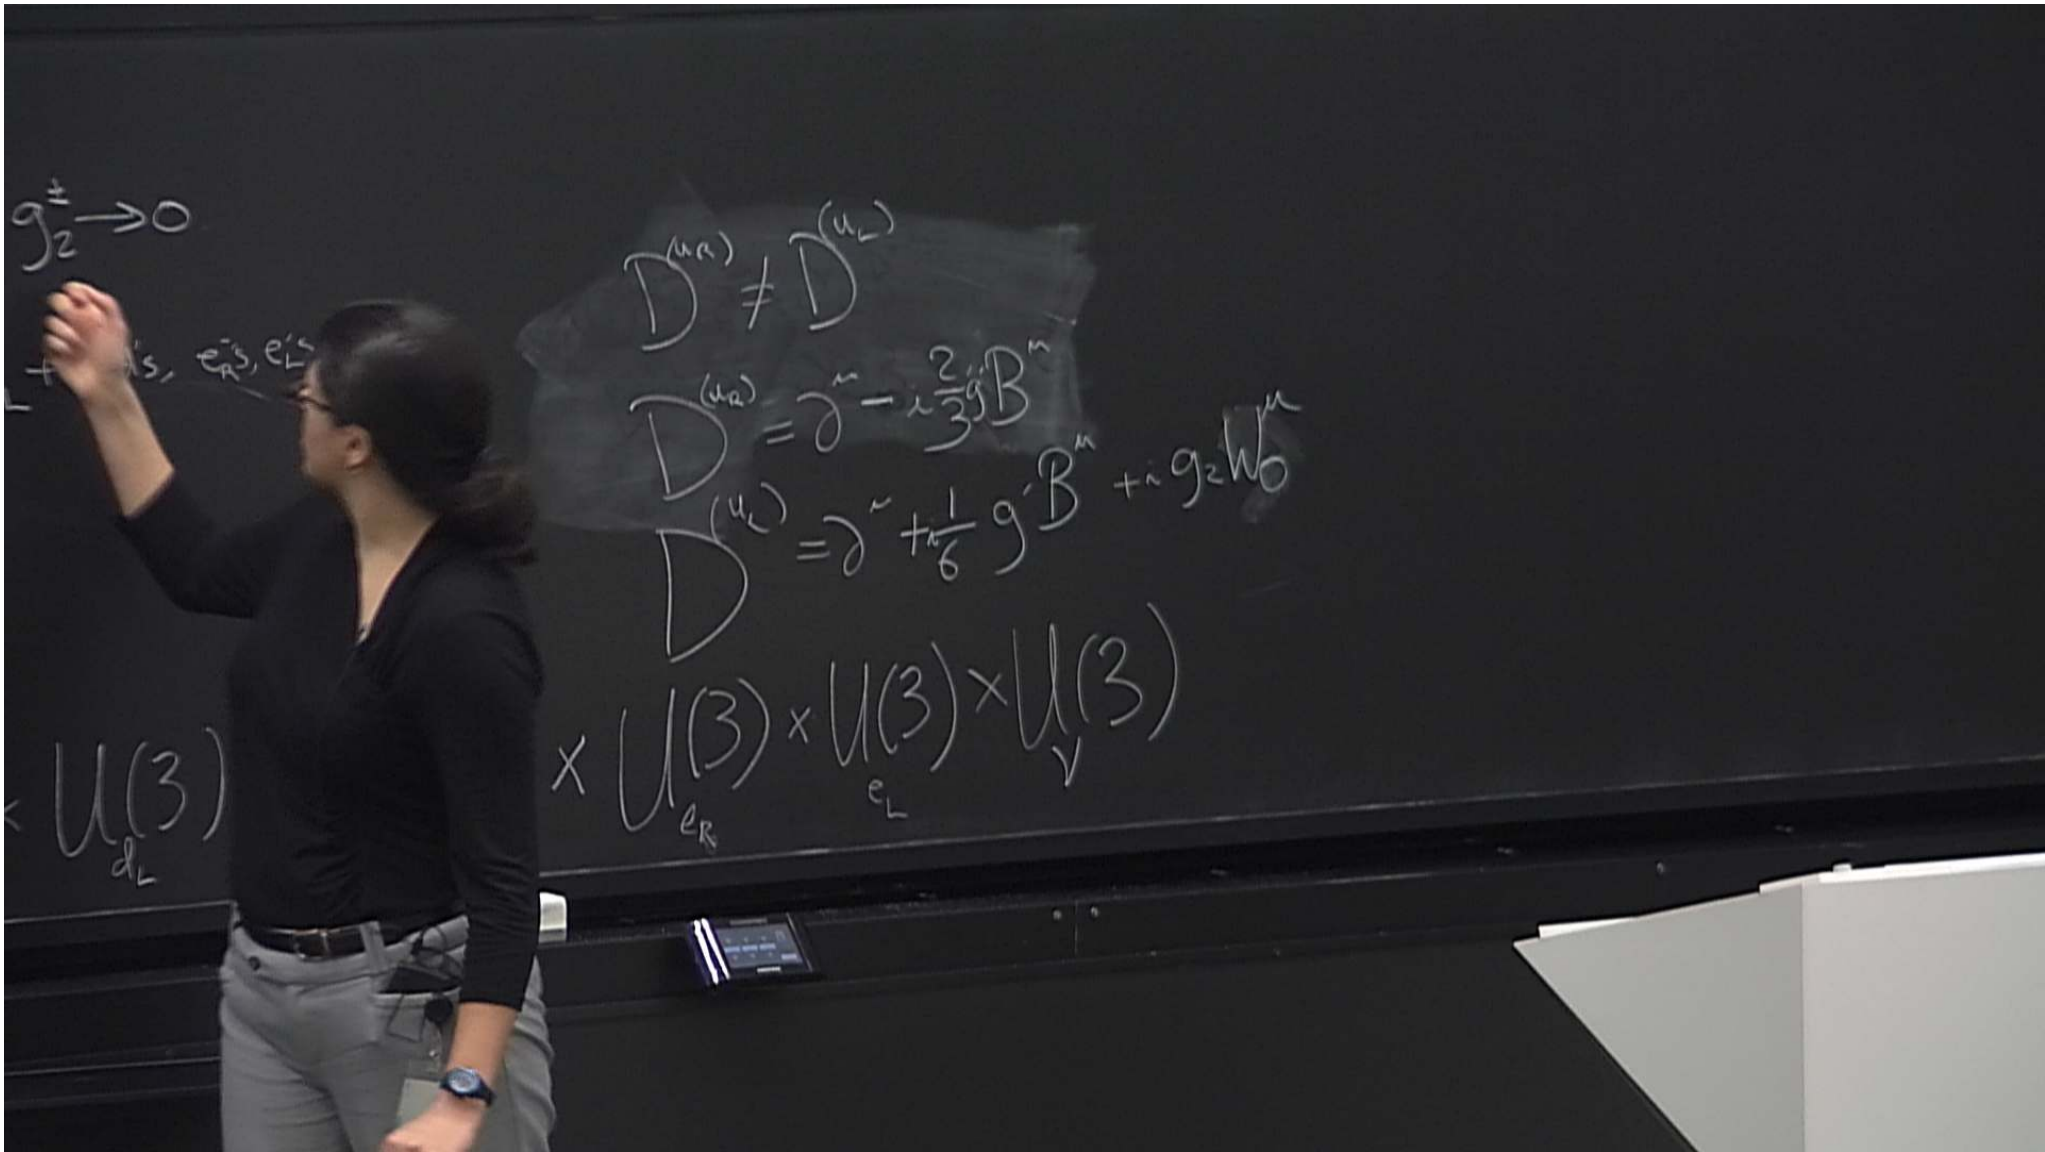 g₂^± → 0
's, e_R^-'s, e_L^-'s
D^(u_R) ≠ D^(u_L)
D^(u_R) = ∂^μ - i 2/3 g' B^μ
D^(u_L) = ∂^μ + i 1/6 g' B^μ + i g₂ W₀^μ
× U(3)_{d_L} × U(3)_{e_R} × U(3)_{e_L} × U(3)_ν)